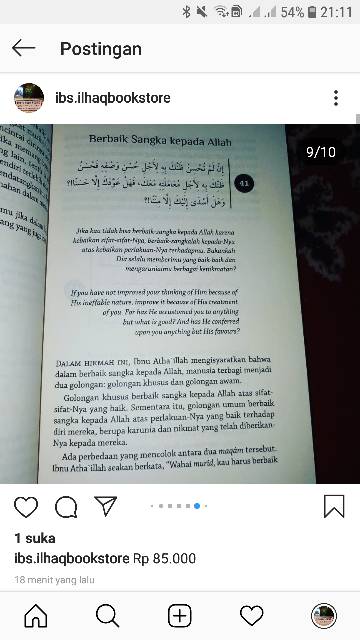 54% 21:11
Postingan
ibs.ilhaqbookstore
9/10
Berbaik Sangka kepada Allah
إِنْ لَمْ تُحْسِنْ ظَنَّكَ بِهِ لِأَجْلِ حُسْنِ وَصْفِهِ فَحَسِّنْ
ظَنَّكَ بِهِ لِأَجْلِ مُعَامَلَتِهِ مَعَكَ، فَهَلْ عَوَّدَكَ إِلَّا حَسَنًا؟!
وَهَلْ أَسْدَى إِلَيْكَ إِلَّا مِنَنًا؟!
41
Jika kau tidak bisa berbaik-sangka kepada Allah karena
kebaikan sifat-sifat-Nya, berbaik-sangkalah kepada-Nya
atas kebaikan perlakuan-Nya terhadapmu. Bukankah
Dia selalu memberimu yang baik-baik dan
mengaruniaimu berbagai kenikmatan?
If you have not improved your thinking of Him because of
His ineffable nature, improve it because of His treatment
of you. For has He accustomed you to anything
but what is good? And has He conferred
upon you anything but His favours?
DALAM HIKMAH INI, Ibnu Atha'illah mengisyaratkan bahwa
dalam berbaik sangka kepada Allah, manusia terbagi menjadi
dua golongan: golongan khusus dan golongan awam.
Golongan khusus berbaik sangka kepada Allah atas sifat-
sifat-Nya yang baik. Sementara itu, golongan umum berbaik
sangka kepada Allah atas perlakuan-Nya yang baik terhadap
diri mereka, berupa karunia dan nikmat yang telah diberikan-
Nya kepada mereka.
Ada perbedaan yang mencolok antara dua maqâm tersebut.
Ibnu Atha'illah seakan berkata, "Wahai murid, kau harus berbaik
1 suka
ibs.ilhaqbookstore Rp 85.000
18 menit yang lalu